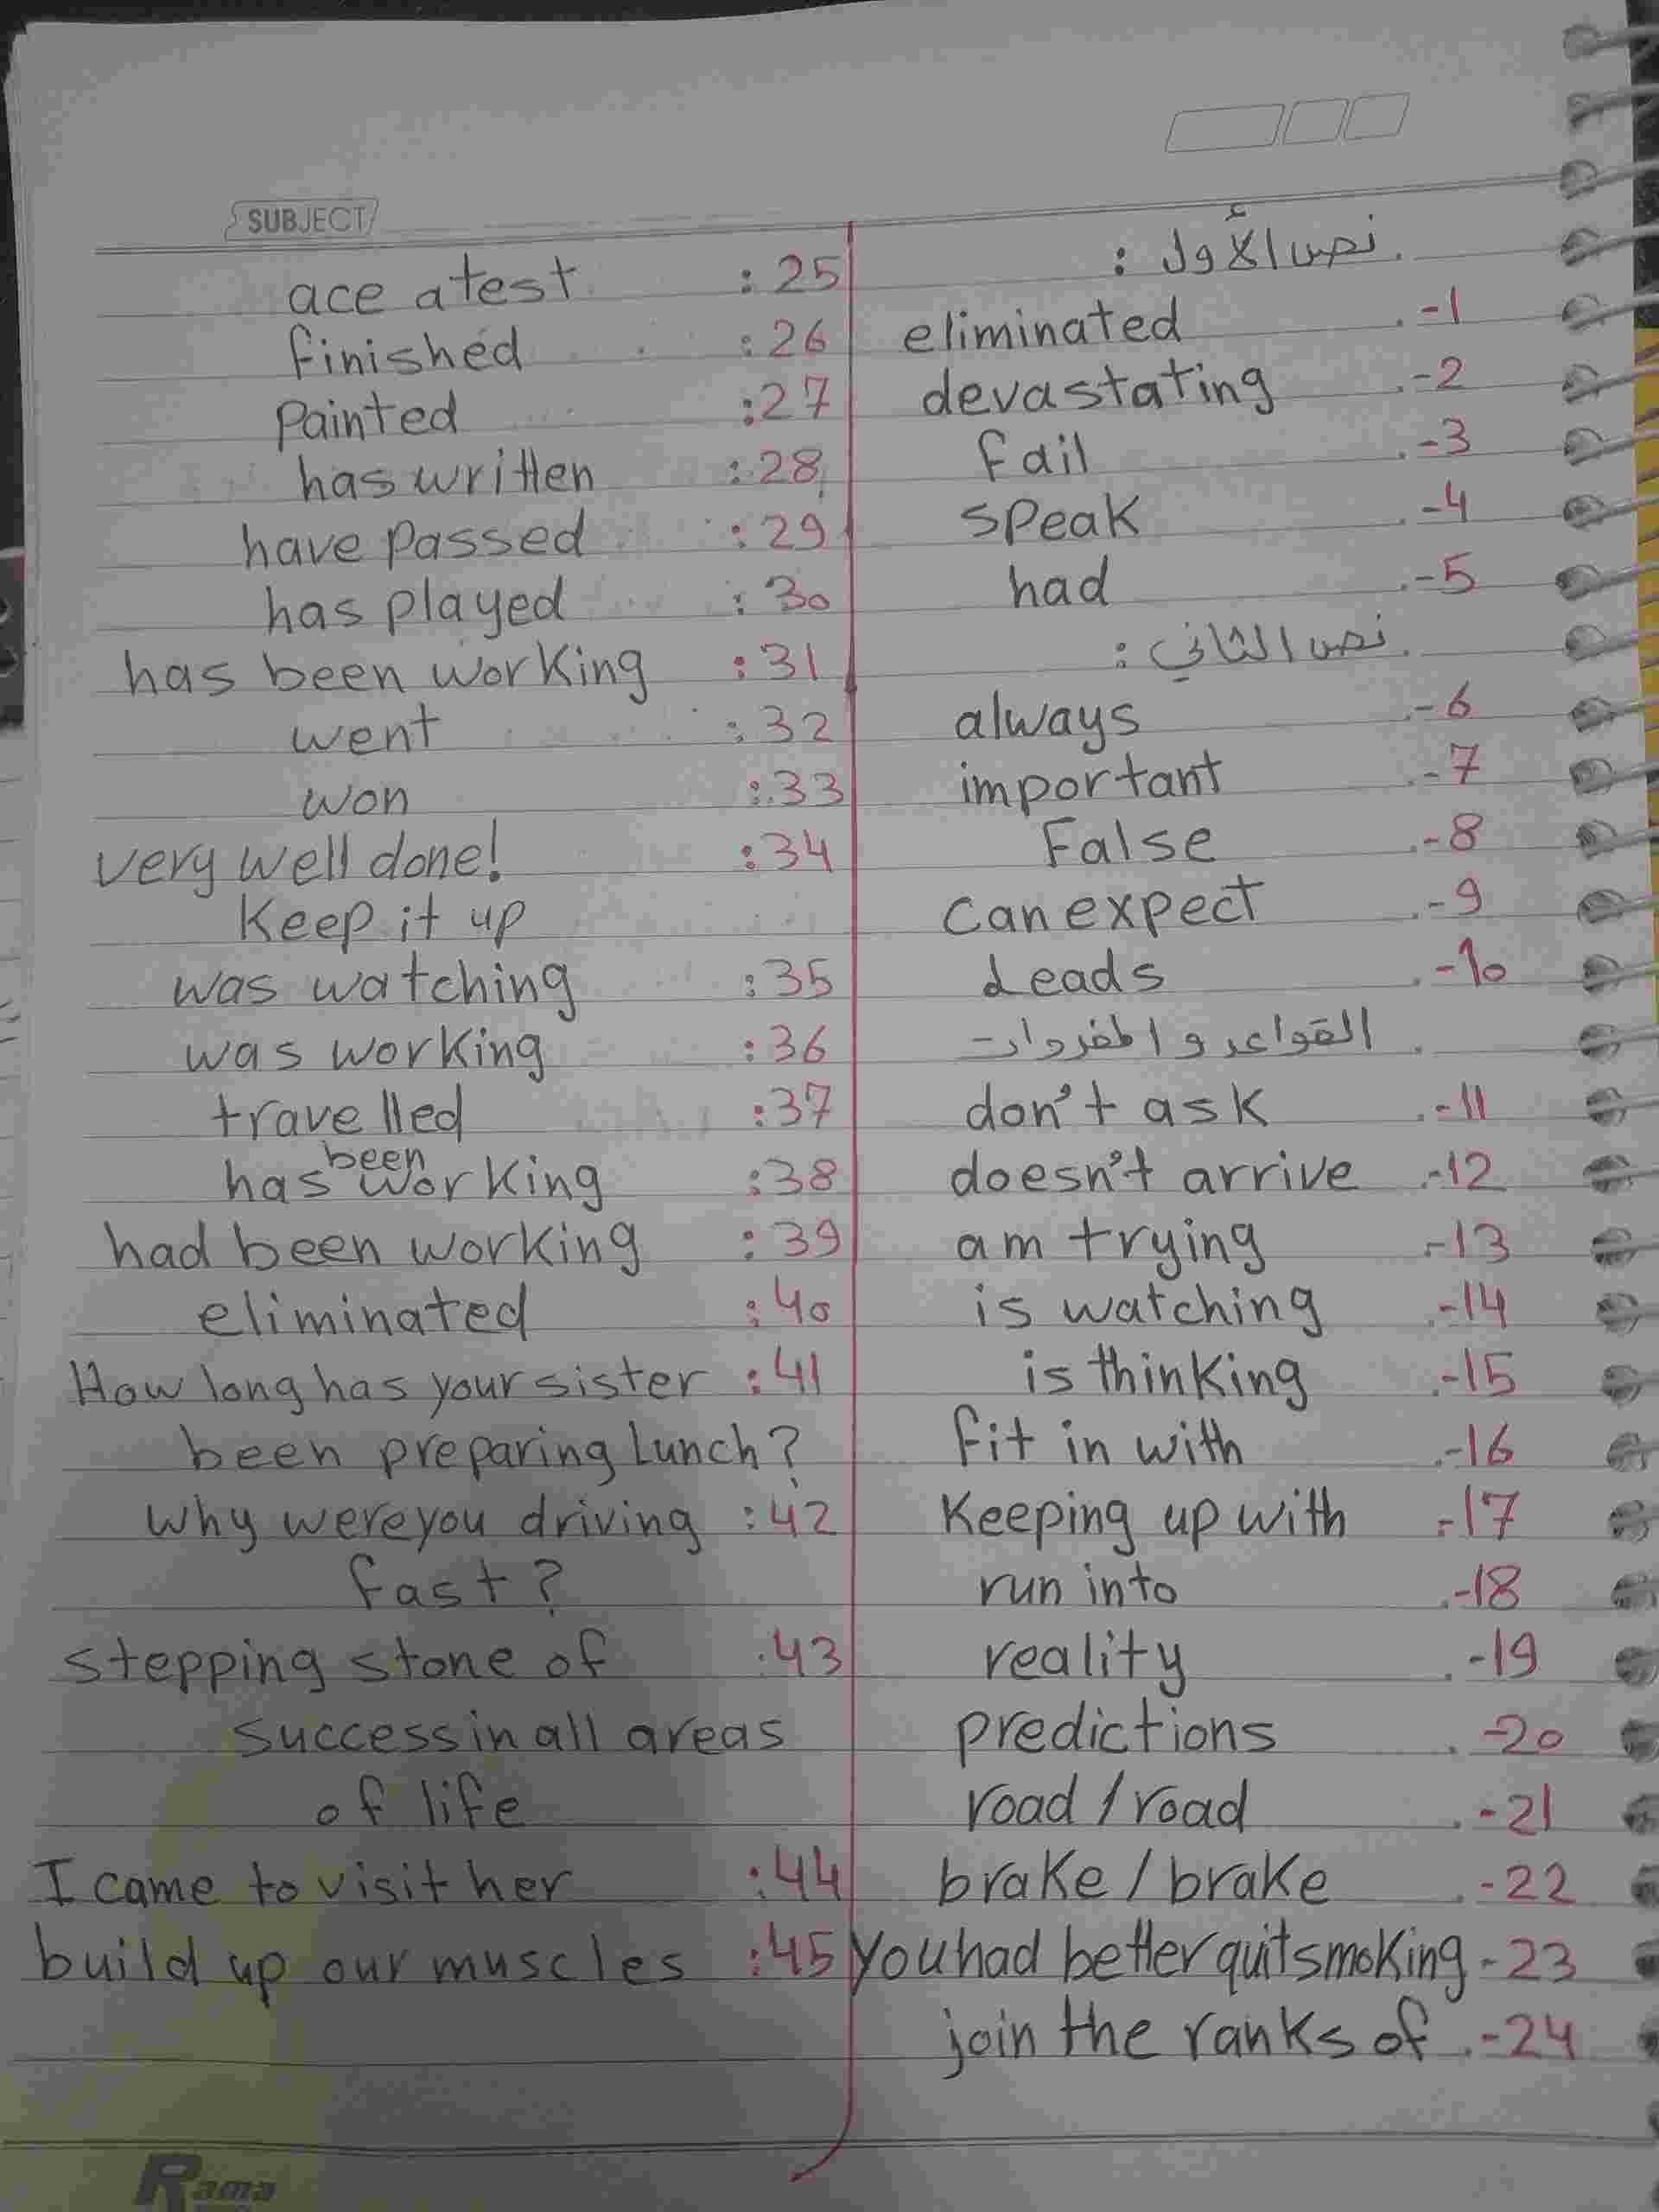 SUBJECT
نص الأول :
1- eliminated
2- devastating
3- fail
4- speak
5- had
نص الثاني :
6- always
7- important
8- False
9- can expect
10- Leads
القواعد و المفردات
11- don't ask
12- doesn't arrive
13- am trying
14- is watching
15- is thinking
16- fit in with
17- Keeping up with
18- run into
19- reality
20- predictions
21- road / road
22- brake / brake
23- you had better quit smoking
24- join the ranks of
25: ace a test
26: finished
27: painted
28: has written
29: have passed
30: has played
31: has been working
32: went
33: won
34: very well done!
Keep it up
35: was watching
36: was working
37: travelled
38: has been working
39: had been working
40: eliminated
41: How long has your sister
been preparing lunch?
42: why were you driving
fast?
43: stepping stone of
success in all areas
of life
44: I came to visit her
45: build up our muscles
Rama